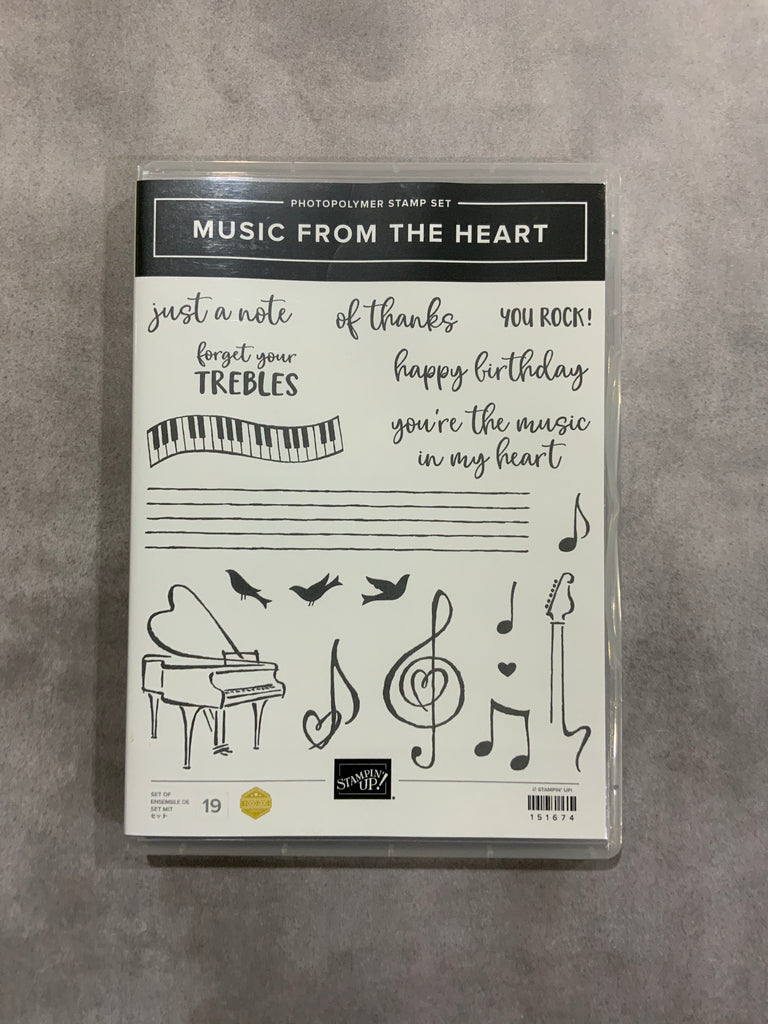 PHOTOPOLYMER STAMP SET
MUSIC FROM THE HEART
just a note
of thanks
YOU ROCK!
forget your
TREBLES
happy birthday
you're the music
in my heart
STAMPIN'
UP!®
SET OF
ENSEMBLE DE
SET MIT
セット
19
© STAMPIN' UP!
151674